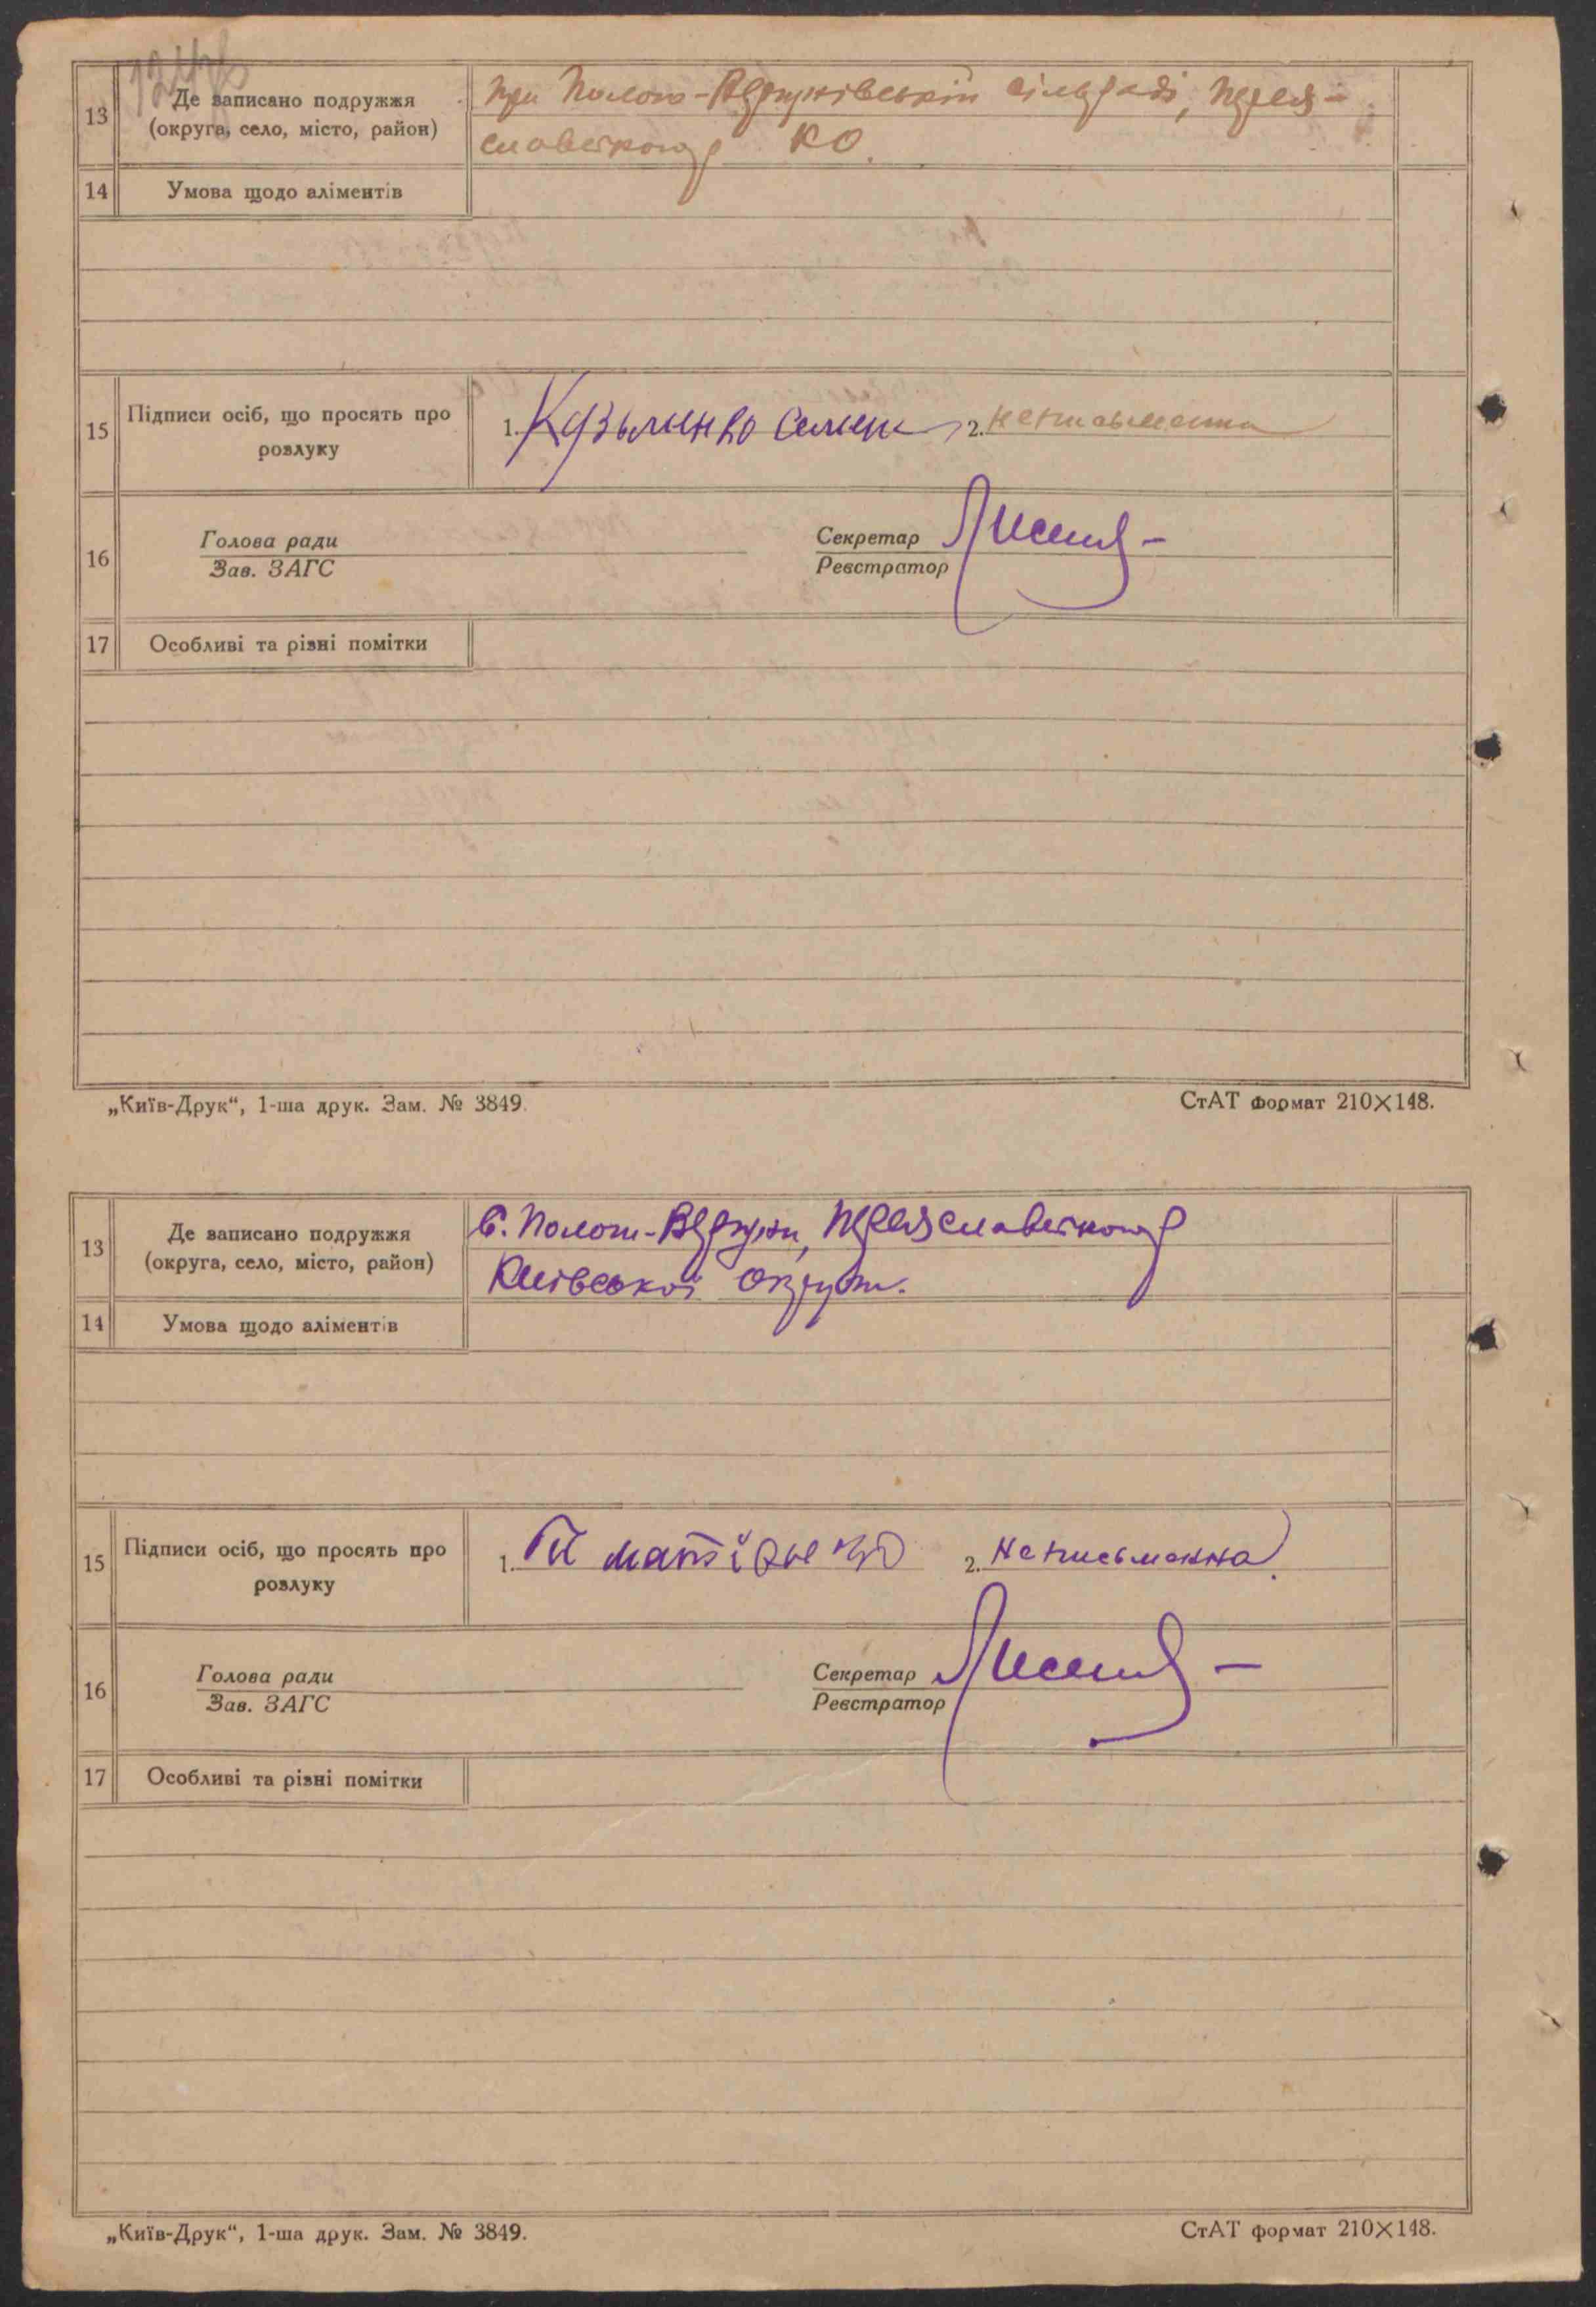 13 Де записано подружжя при Полого-Вергунівській сільраді, Перея-
(округа, село, місто, район) славського р КО.
14 Умова щодо аліментів
15 Підписи осіб, що просять про 1. Кузьменко Семен 2. неписьменна
розлуку
16 Голова ради Секретар
Зав. ЗАГС Реєстратор
17 Особливі та різні помітки
„Київ-Друк“, 1-ша друк. Зам. № 3849. СтАТ формат 210×148.
13 Де записано подружжя с. Пологи-Вергуни, Переяславського р
(округа, село, місто, район) Київської округи.
14 Умова щодо аліментів
15 Підписи осіб, що просять про 1. 2. Неписьменна
розлуку
16 Голова ради Секретар
Зав. ЗАГС Реєстратор
17 Особливі та різні помітки
„Київ-Друк“, 1-ша друк. Зам. № 3849. СтАТ формат 210×148.